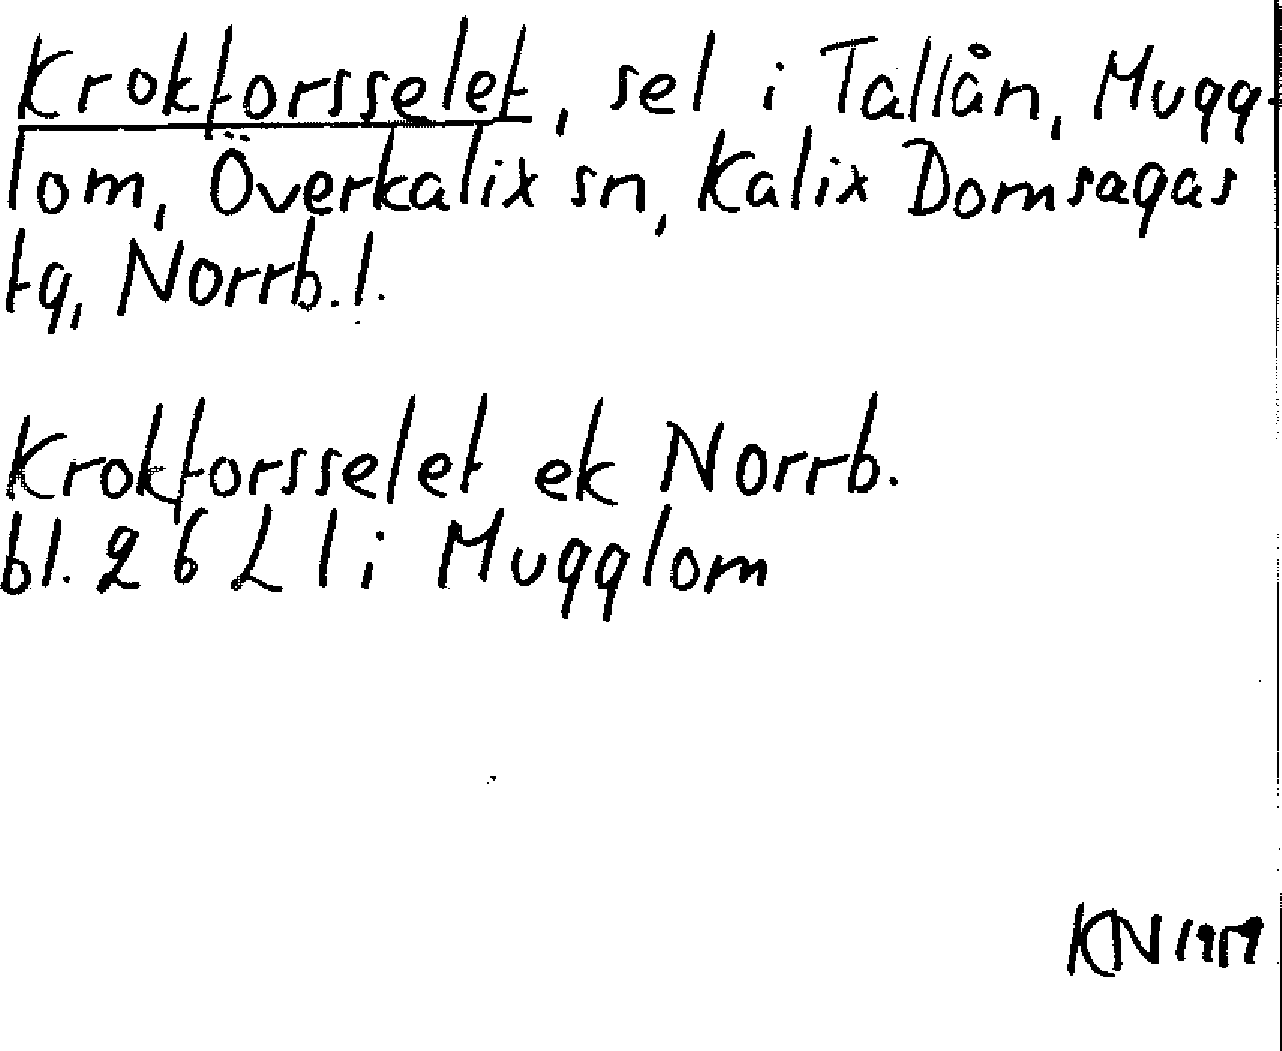 Krokforsselet, sel i Tallån, Mugg-
lom, Överkalix sn, Kalix Domsagas
tg, Norrb. l.
Krokforsselet ek Norrb.
bl. 26 L l i Mugglom
KN 1959